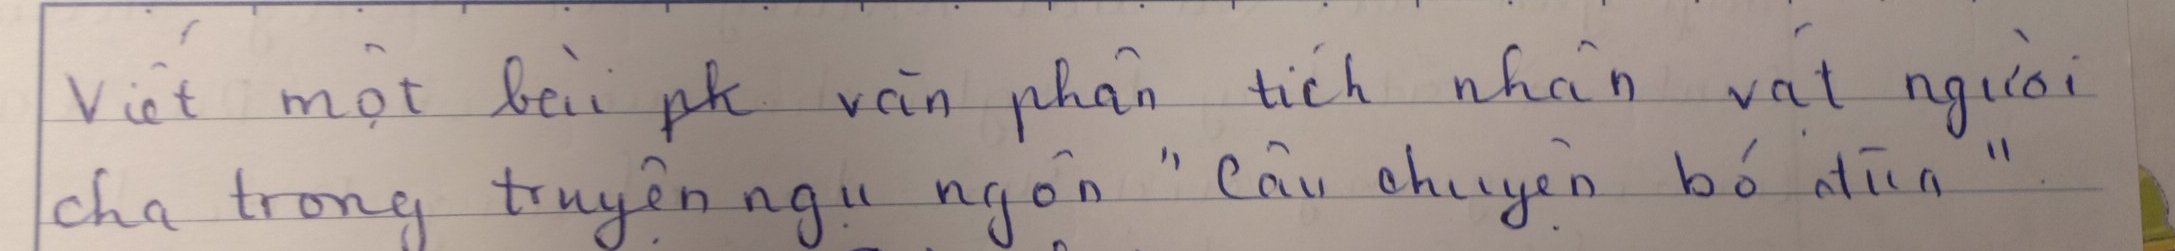 Viết một bài văn phân tích nhân vật người
cha trong truyện ngụ ngôn "Câu chuyện bó đũa".